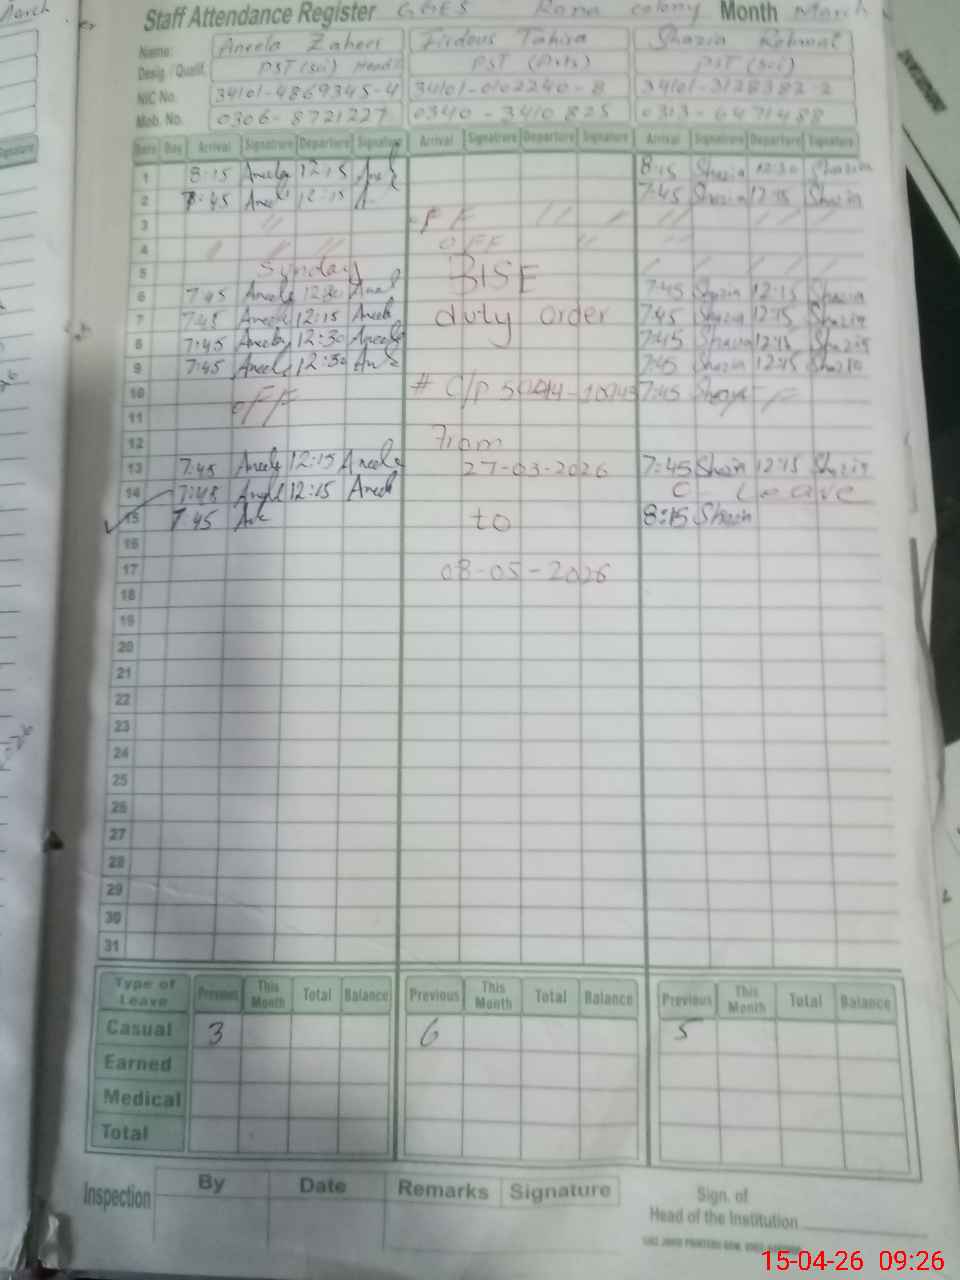 March
Staff Attendance Register GGES Rana colony Month March
Name: Aneela Zaheer Firdous Tahira Shazia Rehmat
Desig / Qualif. PST (Sci) Head PST (Arts) PST (Sci)
NIC No. 34101-4869345-4 34101-0102240-8 34101-3128382-2
Mob. No. 0306-8721227 0340-3410825 0313-6471488
Signature
Date Day Arrival Signature Departure Signature Arrival Signature Departure Signature Arrival Signature Departure Signature
1 8:15 Aneela 12:15 8:15 Shazia 12:30 Shazia
2 7:45 12:15 7:45 Shazia 12:15 Shazia
3
4 OFF
5 Sunday BISE
6 7:45 Aneela 7:45 Shazia 12:15 Shazia
7 7:45 Aneela 12:15 Aneela duty order 7:45 Shazia 12:15 Shazia
8 7:45 Aneela 12:30 Aneela 7:45 Shazia 12:15 Shazia
9 7:45 Aneela 12:30 7:45 Shazia 12:15 Shazia
10 # C/P 7:45
11 OFF
12 From
13 7:45 Aneela 12:15 Aneela 27-03-2026 7:45 Shazia 12:15 Shazia
14 7:48 12:15 Aneela C- Leave
15 7:45 to 8:15 Shazia
16
17 08-05-2026
18
19
20
21
22
23
24
25
26
27
28
29
30
31
Type of Leave Previous This Month Total Balance Previous This Month Total Balance Previous This Month Total Balance
Casual 3 6 5
Earned
Medical
Total
Inspection By Date Remarks Signature
Sign. of
Head of the Institution
15-04-26 09:26